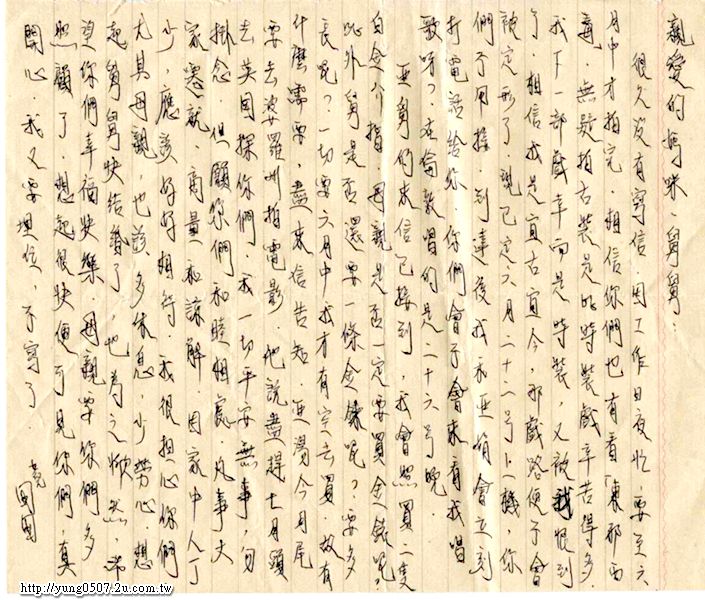 親愛的媽咪、舅舅：
很久沒有寫信，因工作日夜忙，要至六
月中才拍完，相信你們也有看「東
毒，無疑拍古裝是比時裝戲辛苦得多，
我下一部戲幸而是時裝，又被
了，相信我是宜古宜今，那戲路便不會
被定形了，現已定六月二十二號上機，你
們不用接，到達後我和亞 會立刻
打電話給你，你們會不會來看我唱
歌呀？在倫敦唱的是二十六号晚
亞舅们來信已接到，我會照買二隻
白金介指，母親是否一定要買金鈪呢？
此外舅是否還要一條金鍊呢？要多
長呢？一切要六月中我才有空去買，故有
什麼需要，盡來信告知，亞湯今月尾
要去婆羅州拍電影，他說盡趕七月頭
去英国探你們，我一切平安無事，勿
掛念，但願你們和睦相處，凡事大
家遷就，商量和諒解，因家中人丁
少，應該好好相待，我很担心你們
尤其母親，也該多休息，少勞心，想
起舅舅快結婚了，也為之 ，希
望你們幸福快樂，母親要你們多
照顧了，想起很快便可見你們，真
開心，我又要埋位，不寫了。
囡囡
http://yung0507.2u.com.tw